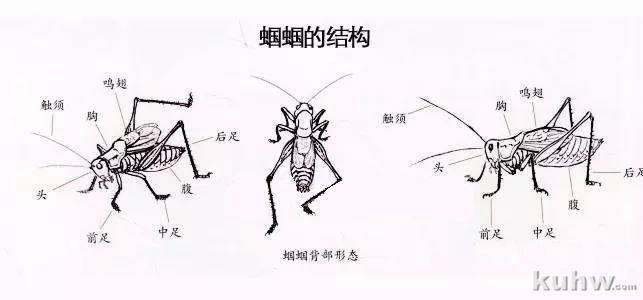 蝈蝈的结构
鸣翅
触须
胸
后足
头
腹
前足
中足
蝈蝈背部形态
鸣翅
触须
胸
头
后足
腹
前足
中足
kuhw.com